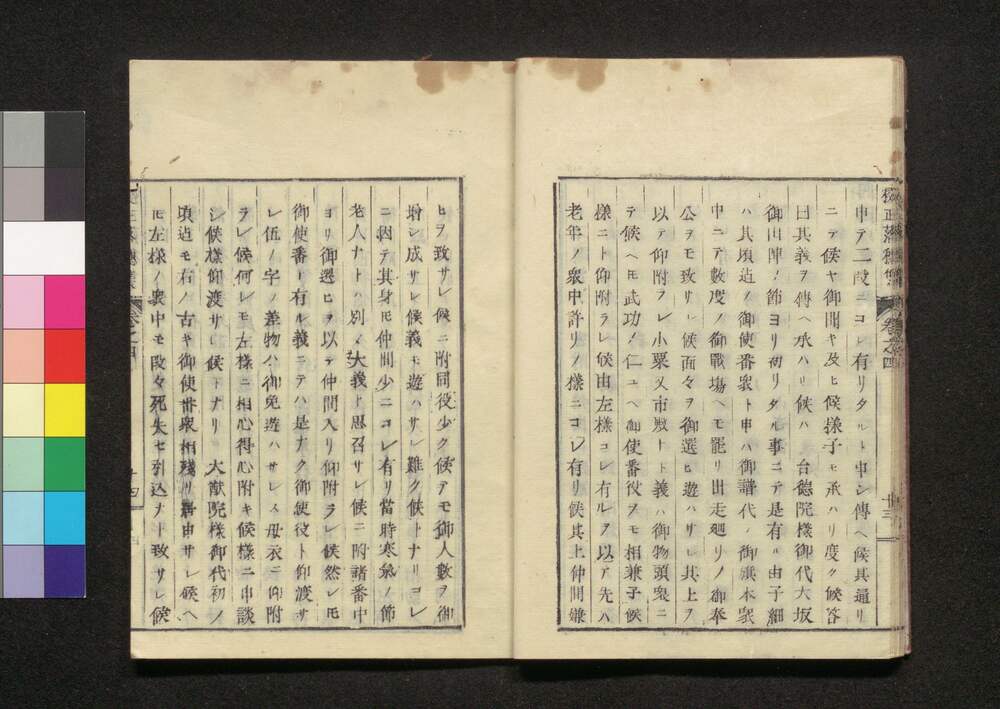 申テ二段ニコレ有リタルト申シ傳ヘ候其通リ
ニテ候ヤ御聞キ及ヒ候樣子モ承ハリ度ク候答
曰其義ヲ傳ヘ承ハリ候ハ台德院樣御代大坂
御出陣ノ節ヨリ初リタル事ニテ是有ル由子細
ハ其頃迠ノ御使番衆ト申ハ御譜代ノ御旗本衆
中ニテ數度ノ御戰塲ヘモ罷リ出走廻リノ御奉
公ヲモ致サレ候面々ヲ御選ヒ遊ハサレ其上ヲ
以テ仰附ラレ小栗又市殿ト義ハ御物頭衆ニ
テ候ヘモ武功ノ仁ユヘ御使番役ヲモ相兼子候
樣ニト仰附ラレ候由左樣コレ有ルヲ以テ先ハ
老年ノ衆中許リノ樣ニコレ有リ候其上仲間嫌
ヒヲ致サレ候ニ附同役少ク候テモ御人數ヲ御
增シ成サレ候義モ遊ハサレ難ク候トナリコレ
ニ因テ其身モ仲間少ニコレ有リ當時寒氣ノ節
老人ナトハ別〆大義ト思召サレ候ニ附諸番中
ヨリ御選ヒヲ以テ仲間入リ仰附ラレ候然レモ
御使番ト有ル義ニテハ是ナク御使役ト仰渡サ
レ伍ノ字ノ差物ハ御免遊ハサレス母衣ニ仰附
ラレ候何レモ左樣ニ相心得心附キ候樣ニ申談
シ候樣仰渡サレ候トナリ大猷院樣御代初ノ
頃迠モ右ノ古キ御使番衆相殘リ居由サレ候ヘ
モ左樣ノ衆中モ段々死失セ引込ナト致サレ候
卷之四
十三